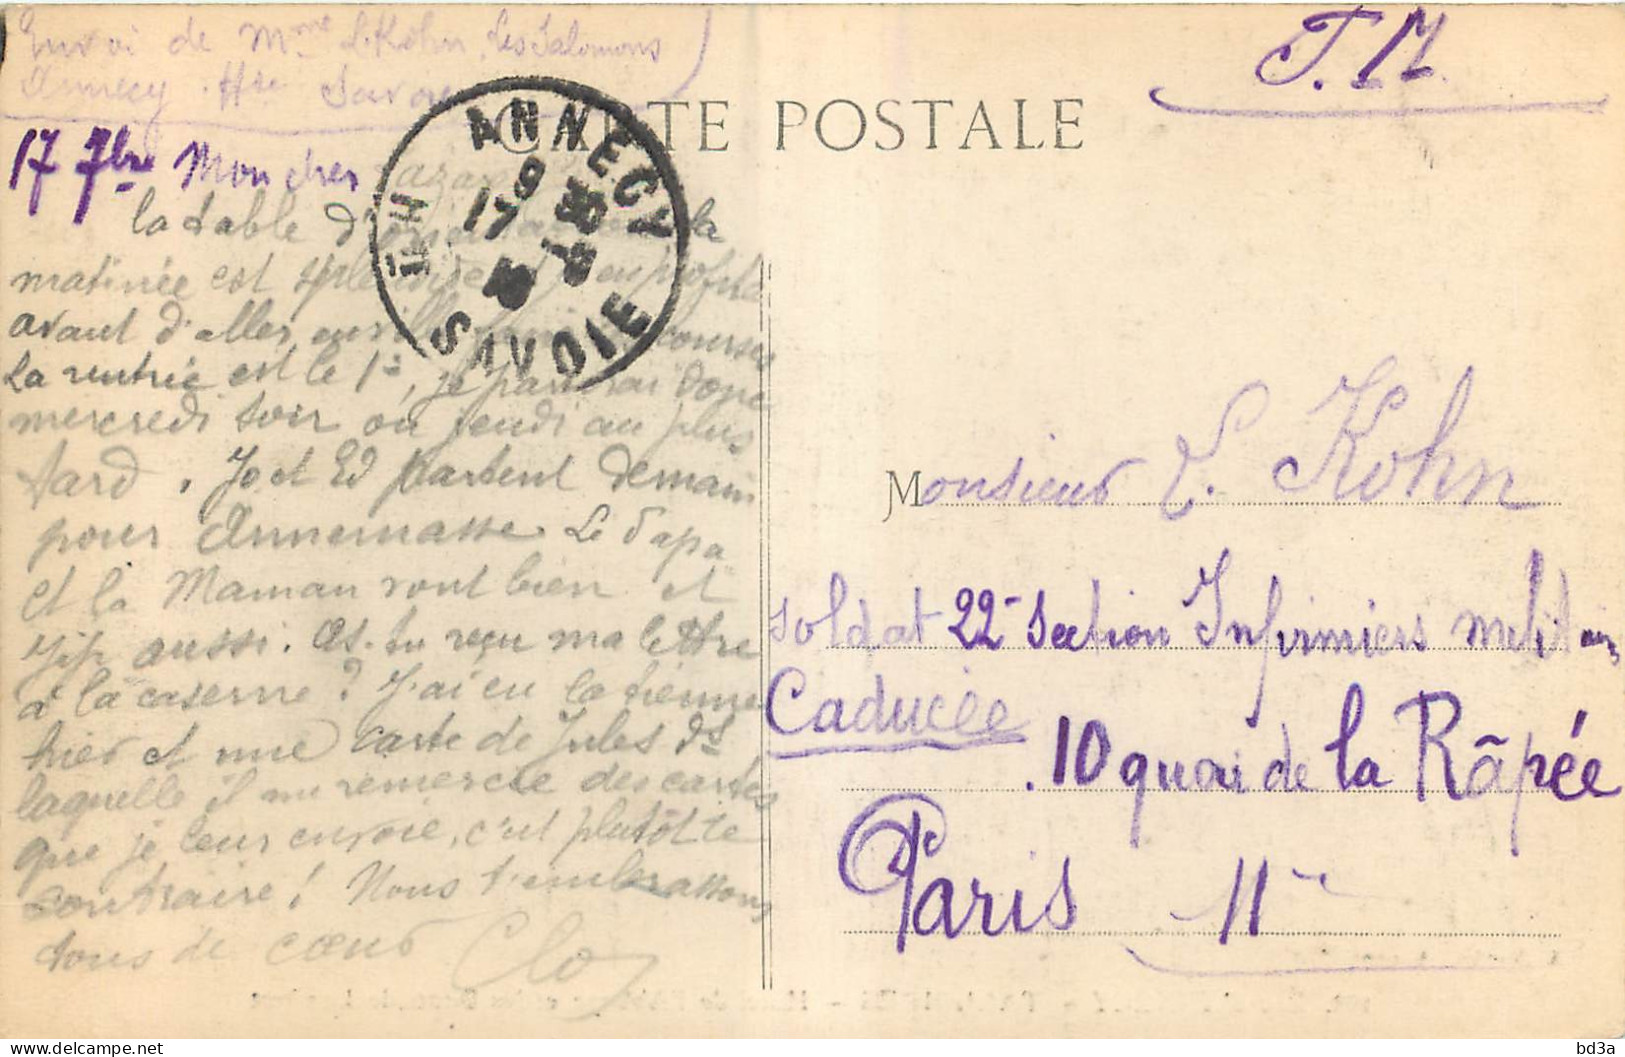 Envoi de Mme L. Kohn, Les Salomons
Annecy. Hte Savoie
T. M.
CARTE POSTALE
ANNECY
17 9
Hte SAVOIE
17 7bre Mon cher
la table d' la
matinée est splendide et j'en profite
avant d'aller en ville faire courses
La rentrée est le 1er, je partirai donc
mercredi soir ou jeudi au plus
tard. Jo et Ed partent demain
pour Annemasse. Le Papa
et la Maman vont bien et
Yip aussi. As-tu reçu ma lettre
à la caserne? J'ai eu la tienne
hier et une carte de Jules ds
laquelle il me remercie des cartes
que je leur envoie, c'est plutôt le
contraire! Nous t'embrassons
tous de cœur Clo
Monsieur L. Kohn
soldat 22e Section Infirmiers milit
Caducée
10 quai de la Râpée
Paris 11e
bd3a